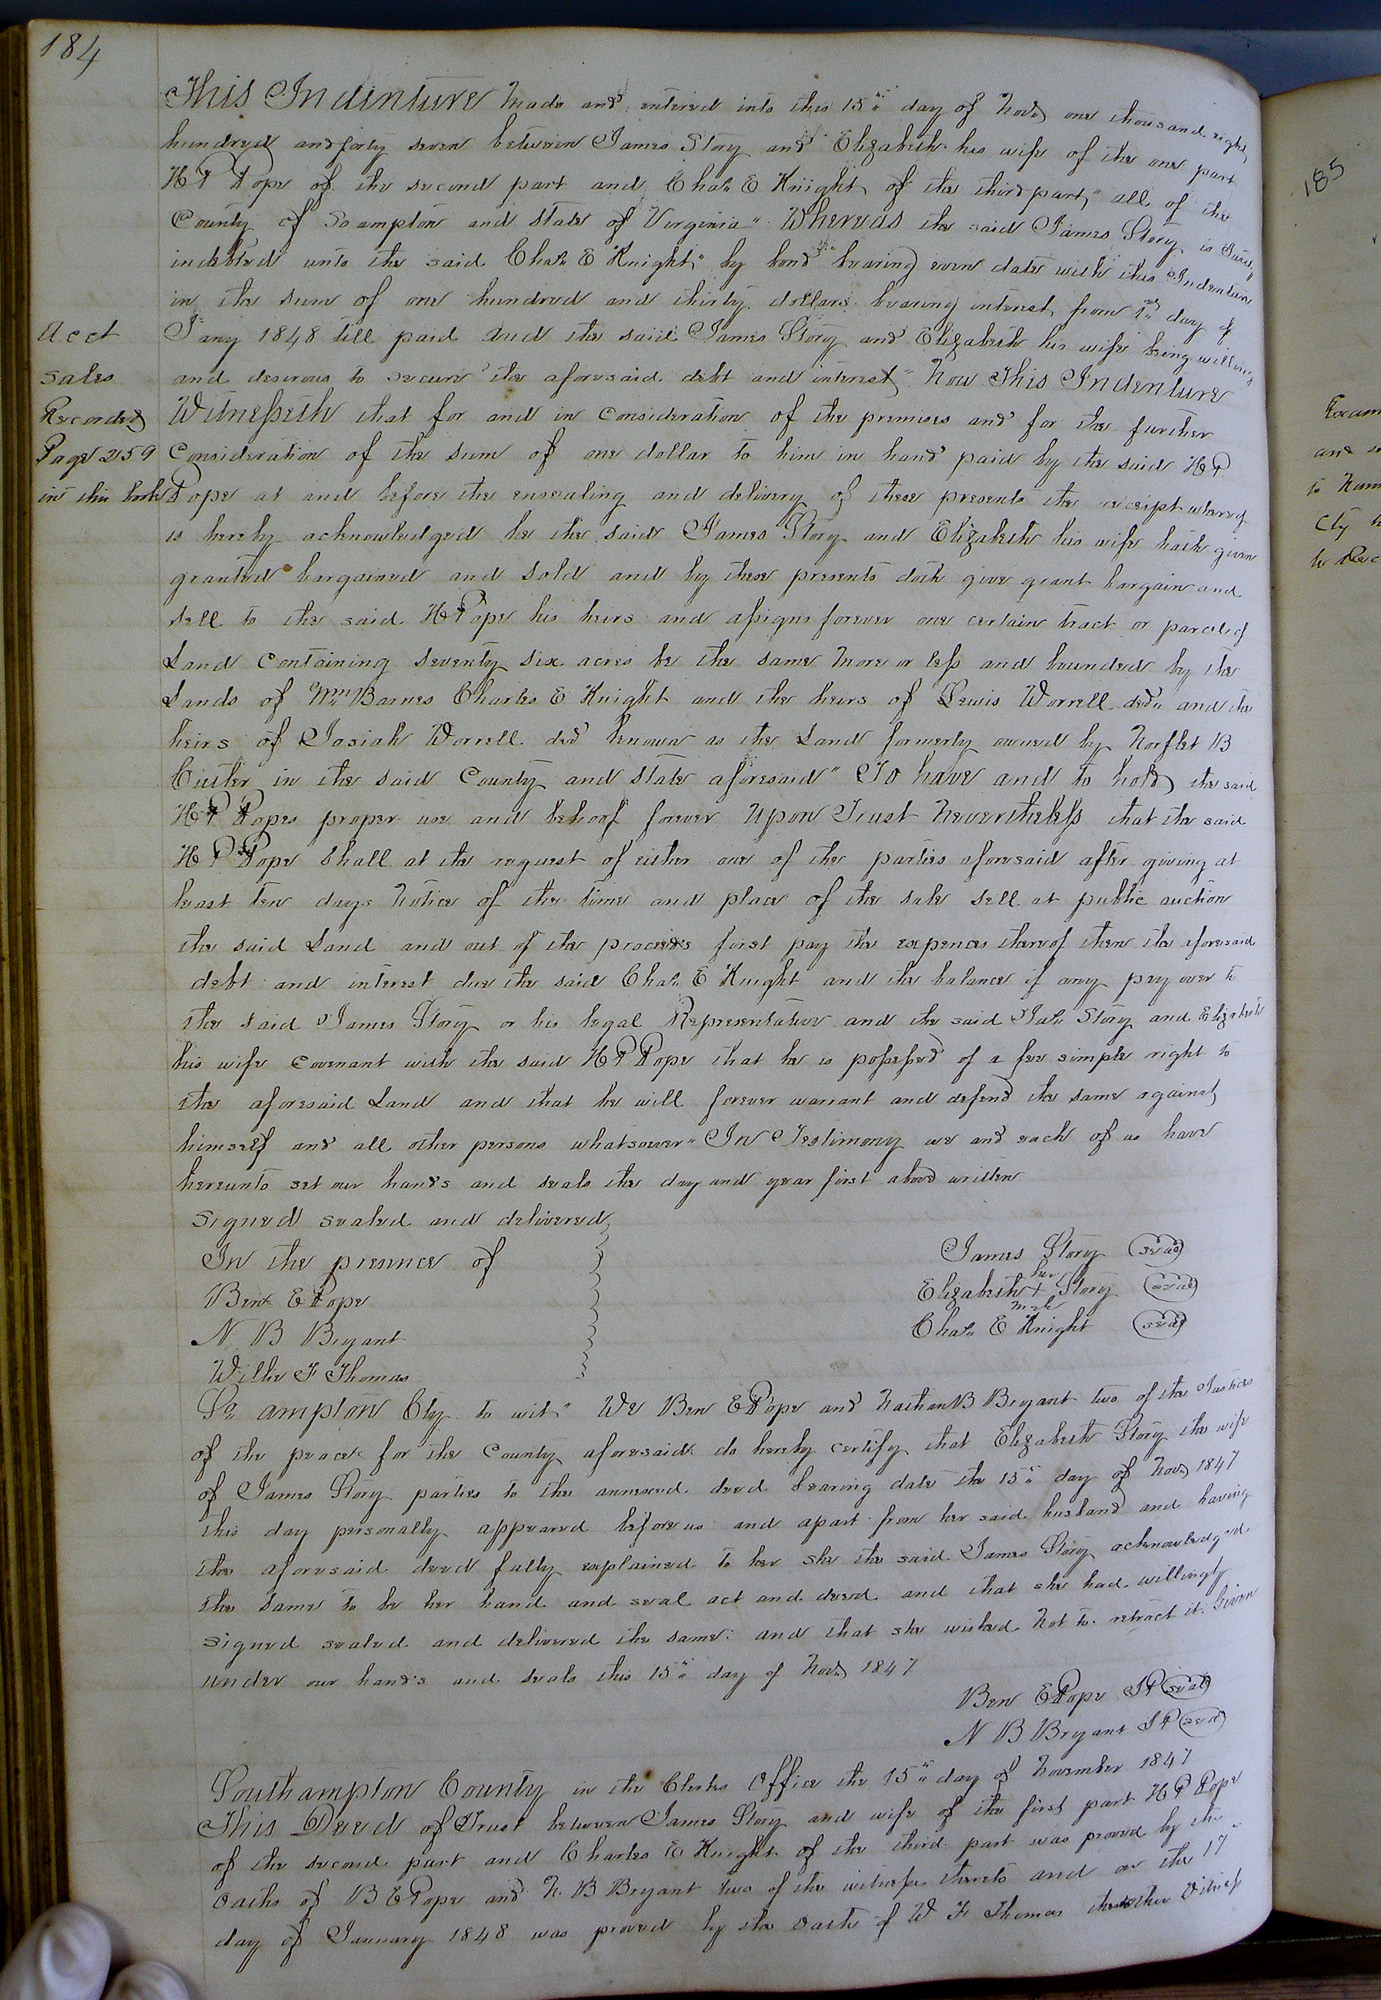 184
This Indenture made and entered into this 15th day of Novr one thousand eight
hundred and forty seven between James Story and Elizabeth his wife of the one part
H P Pope of the second part and Chas. E Knight of the third part, all of the
County of So ampton and state of Virginia" Whereas the said James Story is Justly
indebted unto the said Chas. E Knight," by bond bearing even date with this Indenture
in the sum of one hundred and thirty dollars bearing interest from 1st day of
Jany 1848 till paid and the said James Story and Elizabeth his wife being willing
and desirous to secure the aforesaid debt and interest" Now This Indenture
Witnesseth that for and in consideration of the premises and for the further
Consideration of the sum of one dollar to him in hand paid by the said H P
Pope at and before the ensealing and delivery of these presents the receipt whereof
is hereby acknowledged he the said James Story and Elizabeth his wife hath given
granted bargained and sold and by these presents doth give grant bargain and
sell to the said H P Pope his heirs and assigns forever one certain tract or parcel of
Land containing seventy six acres be the same more or less and bounded by the
Lands of Wm Barnes Charles E Knight and the heirs of Lewis Worrell decd. and the
heirs of Josiah Worrell decd known as the Land formerly owned by Norflet B
in the said County and state aforesaid" To have and to hold the said
H P Popes proper use and behoof forever upon Trust Nevertheless that the said
H P Pope shall at the request of either one of the parties aforesaid after giving at
least ten days notice of the time and place of the sale sell at public auction
the said Land and out of the proceeds first pay the expences thereof then the aforesaid
debt and interest due the said Chas. E Knight and the balance if any pay over to
the said James Story or his legal Representative and the said Jas. Story and Elizabeth
his wife covenant with the said H P Pope that he is possessed of a fee simple right to
the aforesaid Land and that he will forever warrant and defend the same against
himself and all other persons whatsoever" In Testimony we and each of us have
hereunto set our hands and seals the day and year first above written
Signed sealed and delivered
In the presence of
Ben E Pope
N B Bryant
Willie F Thomas
James Story (seal)
Elizabeth her + mark Story (seal)
Chas. E Knight (seal)
Acct
sales
Recorded
Page 259
in this book
So. ampton Cty to wit" We Ben E Pope and Nathan B Bryant two of the Justices
of the peace for the County aforesaid do hereby certify that Elizabeth Story the wife
of James Story parties to the annexed deed bearing date the 15th day of Novr 1847
this day personally appeared before us and apart from her said husband and having
the aforesaid deed fully explained to her she the said James Story acknowledged
the same to be her hand and seal act and deed and that she had willingly
signed sealed and delivered the same and that she wished not to retract it. Given
under our hands and seals this 15th day of Novr 1847
Ben E Pope J P (seal)
N B Bryant J P (seal)
Southampton County in the Clerks Office the 15th day of November 1847
This Deed of Trust between James Story and wife of the first part H P Pope
of the second part and Charles E Knight of the third part was proved by the
oaths of B E Pope and N. B Bryant two of the witnesses thereto and on the 17
day of January 1848 was proved by the oath of W F Thomas the other Witness
185
Exam
and
to
Cty
to Rec